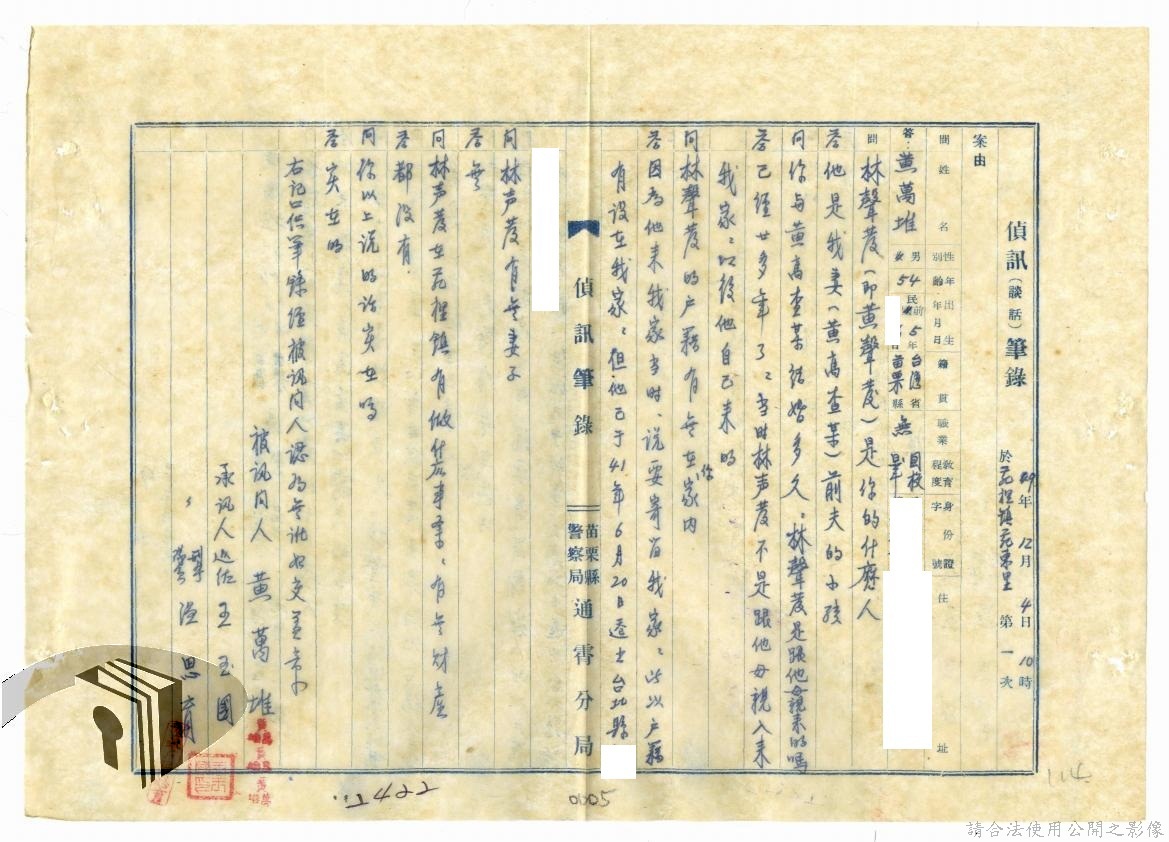 偵訊(談話)筆錄
49年12月4日10時
於苑裡鎮苑東里 第一次
案由
問 姓名 性別 年齡 出生年月日 籍貫 職業 教育程度 身份證字號 住址
答 黃萬堆 男 54 民前5年 台灣省苗栗縣 無 國校畢
問 林聲發(即黃聲發)是你的什麼人
答 他是我妻(黃高查某)前夫的小孩
問 你與黃高查某結婚多久、林聲發是跟他母親來的嗎
答 已經廿多年了、当时林声發不是跟他母親入來
我家、以後他自己来的
問 林聲發的户籍有無在你家内
答 因為他来我家当时、说要寄留我家、所以户籍
有设在我家、但他已于41年6月20日遷出台北縣
偵訊筆錄 苗栗縣警察局通霄分局
問 林声發有無妻子
答 無
問 林声發在苑裡鎮有做什么事業、有無财產
答 都没有
問 你以上说的话实在吗
答 实在的
右記口供筆錄經被訊問人認為無訛
被訊問人 黃萬堆
承訊人巡佐 王玉國
0005
114
請合法使用公開之影像